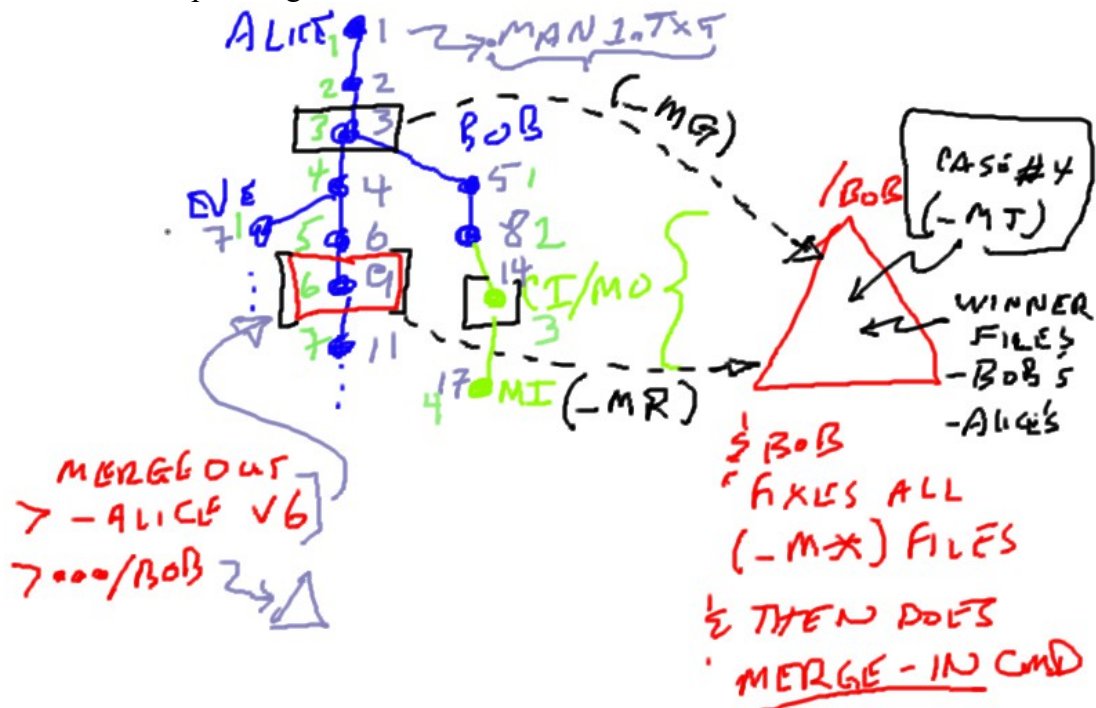 ALICE
1 1
.MAN1.TXT
2 2
3 3
(-MG)
BOB
4 4
5 1
EVE
1
7
5 6
8 2
6 9
14
CI/MO
3
7 11
17 MI
4
(-MR)
/BOB
CASE #4
(-MT)
WINNER
FILES
-BOB'S
-ALICE'S
MERGE OUT
> -ALICE V6
> .../BOB
BOB
FIXES ALL
(-M*) FILES
THEN DOES
MERGE-IN CMD